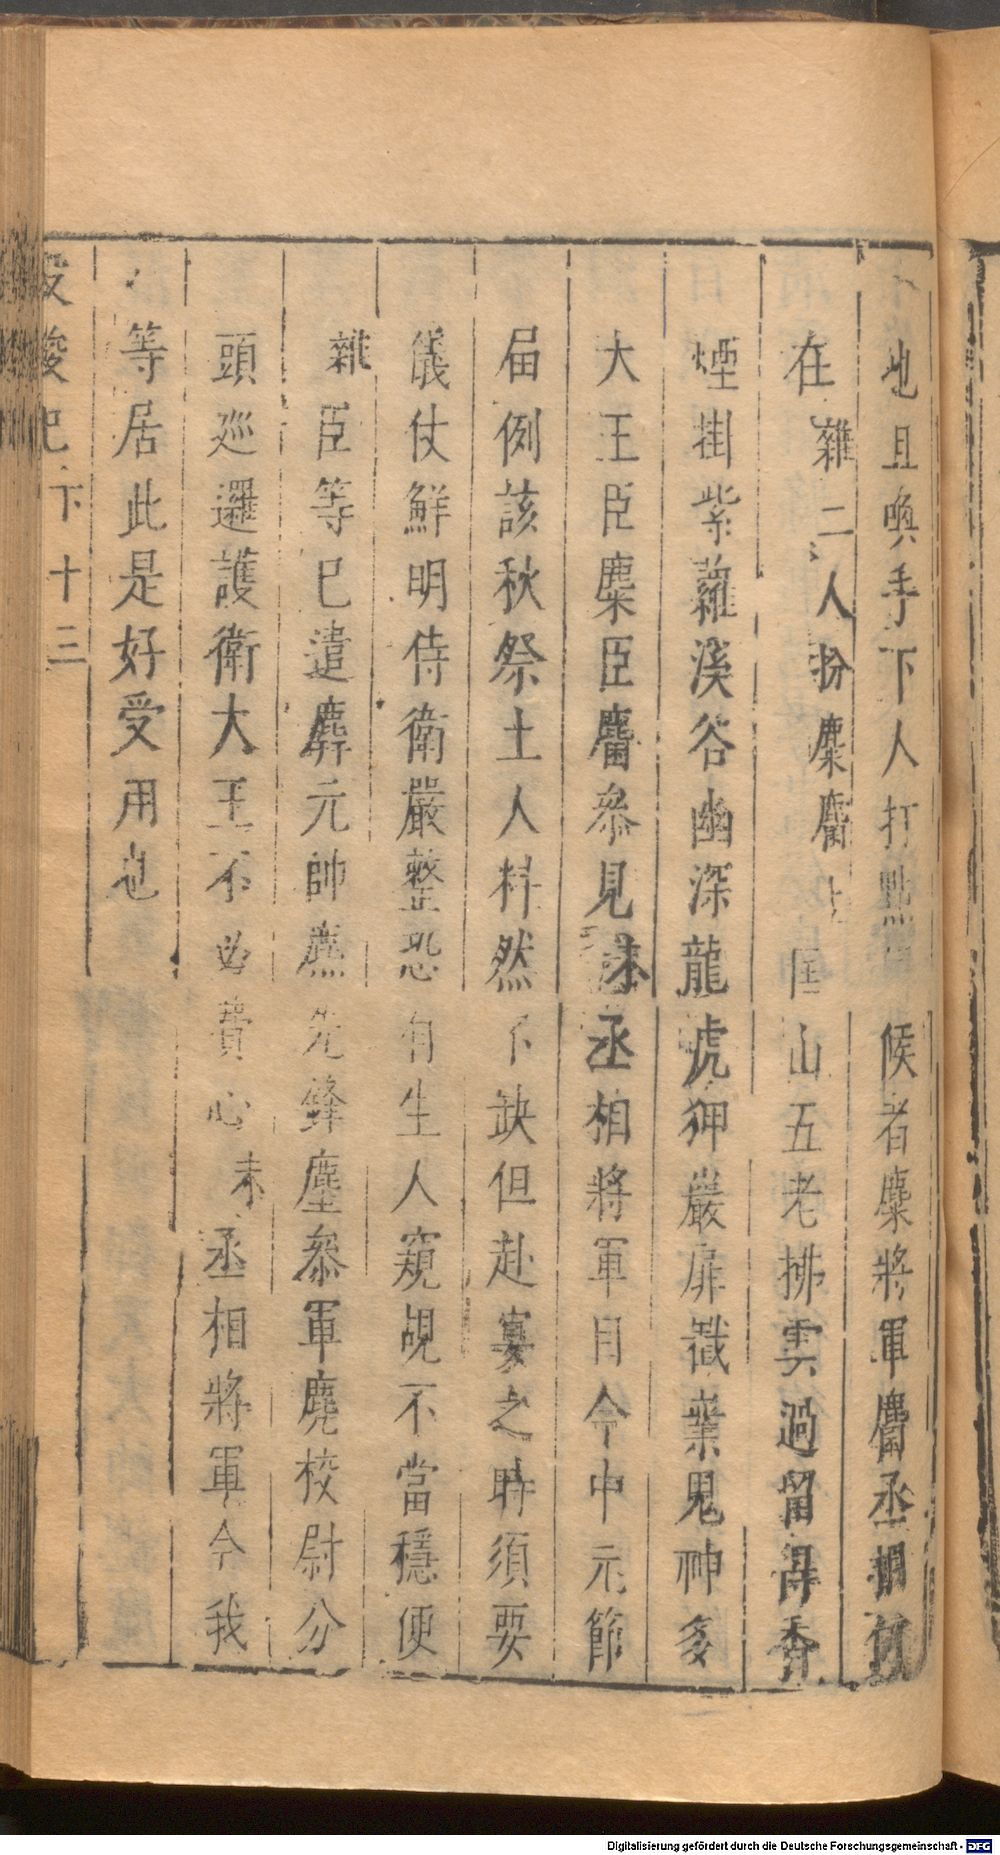 地且喚手下人打點 候者麋將軍麕丞相何
在雜二人扮麋麕上 匡山五老拂雲過留得香
煙掛紫蘿溪谷幽深龍虎狎巖扉嶻嶪鬼神多
大王臣麋臣麕叅見末丞相將軍目今中元節
届例該秋祭土人料然不缺但赴宴之時須要
儀仗鮮明侍衛嚴整恐有生人窺覘不當穩便
雜臣等已遣麝元帥麃先鋒麈叅軍麂校尉分
頭廵邏護衛大王不必費心末丞相將軍今我
等居此是好受用也
卞十三
Digitalisierung gefördert durch die Deutsche Forschungsgemeinschaft - DFG